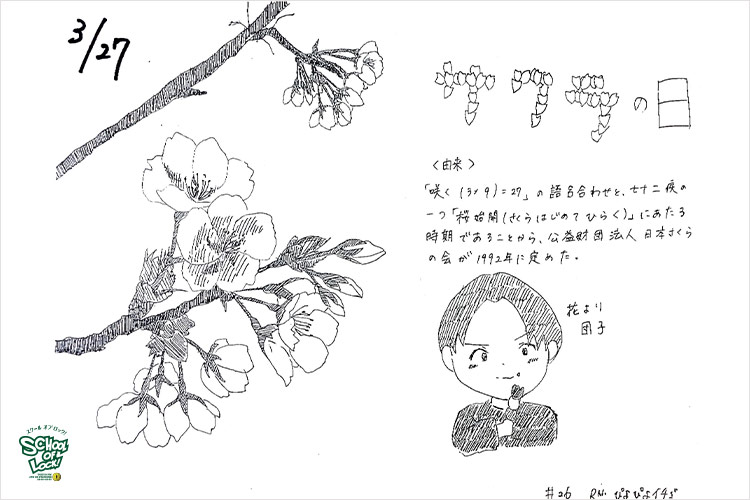 3/27
サクラの日
〈由来〉
「咲く(3×9)=27」の語呂合わせと、七十二候の
一つ「桜始開(さくらはじめてひらく)」にあたる
時期であることから、公益財団法人日本さくら
の会が1992年に定めた。
花より
団子
スクール オブ ロック!
SCHOOL
OF
LOCK!
#26 RN. ぴよぴよイチゴ